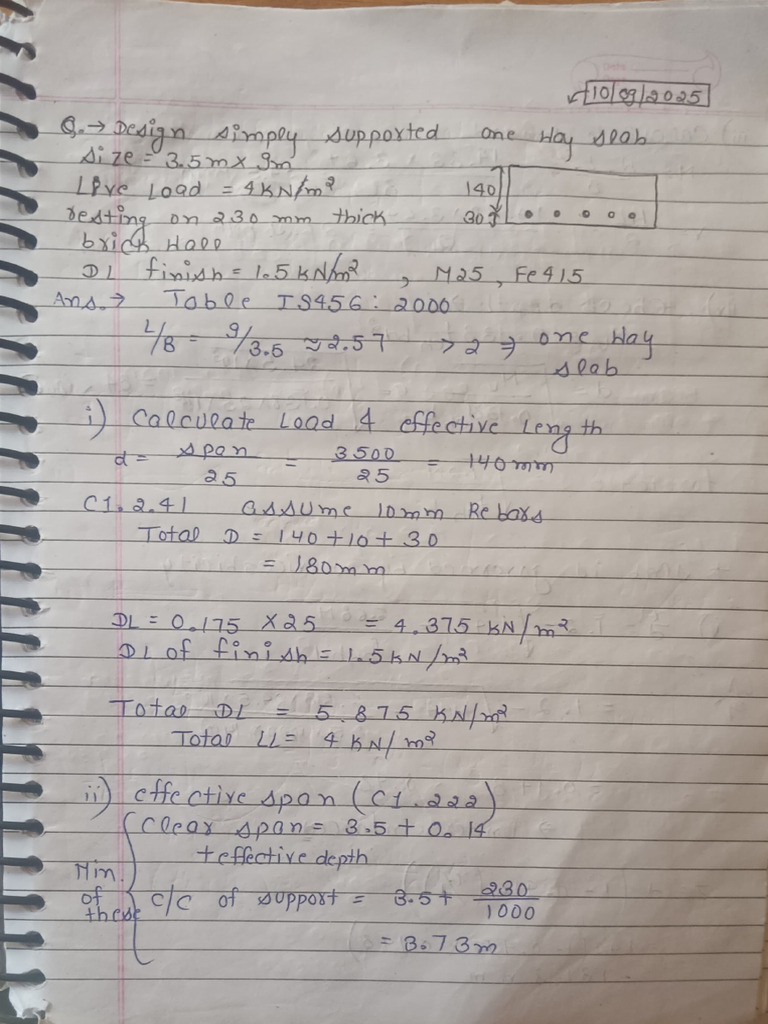 10/03/2025
Q.→ Design simply supported one way slab
size = 3.5m x 9m
Live Load = 4 KN/m²
140
resting on 230 mm thick
30
brick wall
DL finish = 1.5 KN/m² , M25, Fe415
Ans.→ Table IS456: 2000
L/B = 9/3.5 ≈ 2.57 > 2 ⇒ one way
slab
i) Calculate Load & effective Length
d = span/25 = 3500/25 = 140mm
C1.2.41 assume 10mm Rebars
Total D = 140 + 10 + 30
= 180mm
DL = 0.175 x 25 = 4.375 KN/m²
DL of finish = 1.5 KN/m²
Total DL = 5.875 KN/m²
Total LL = 4 KN/m²
ii) effective span (C1.222)
Clear span = 3.5 + 0.14
+ effective depth
Min. of these
C/C of support = 3.5 + 230/1000
= 3.73m